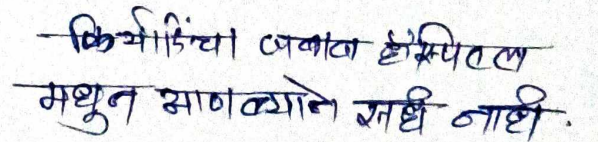 फिर्यादिंचा जबाब हॉस्पिटल
मधुन आणल्याने सही नाही.